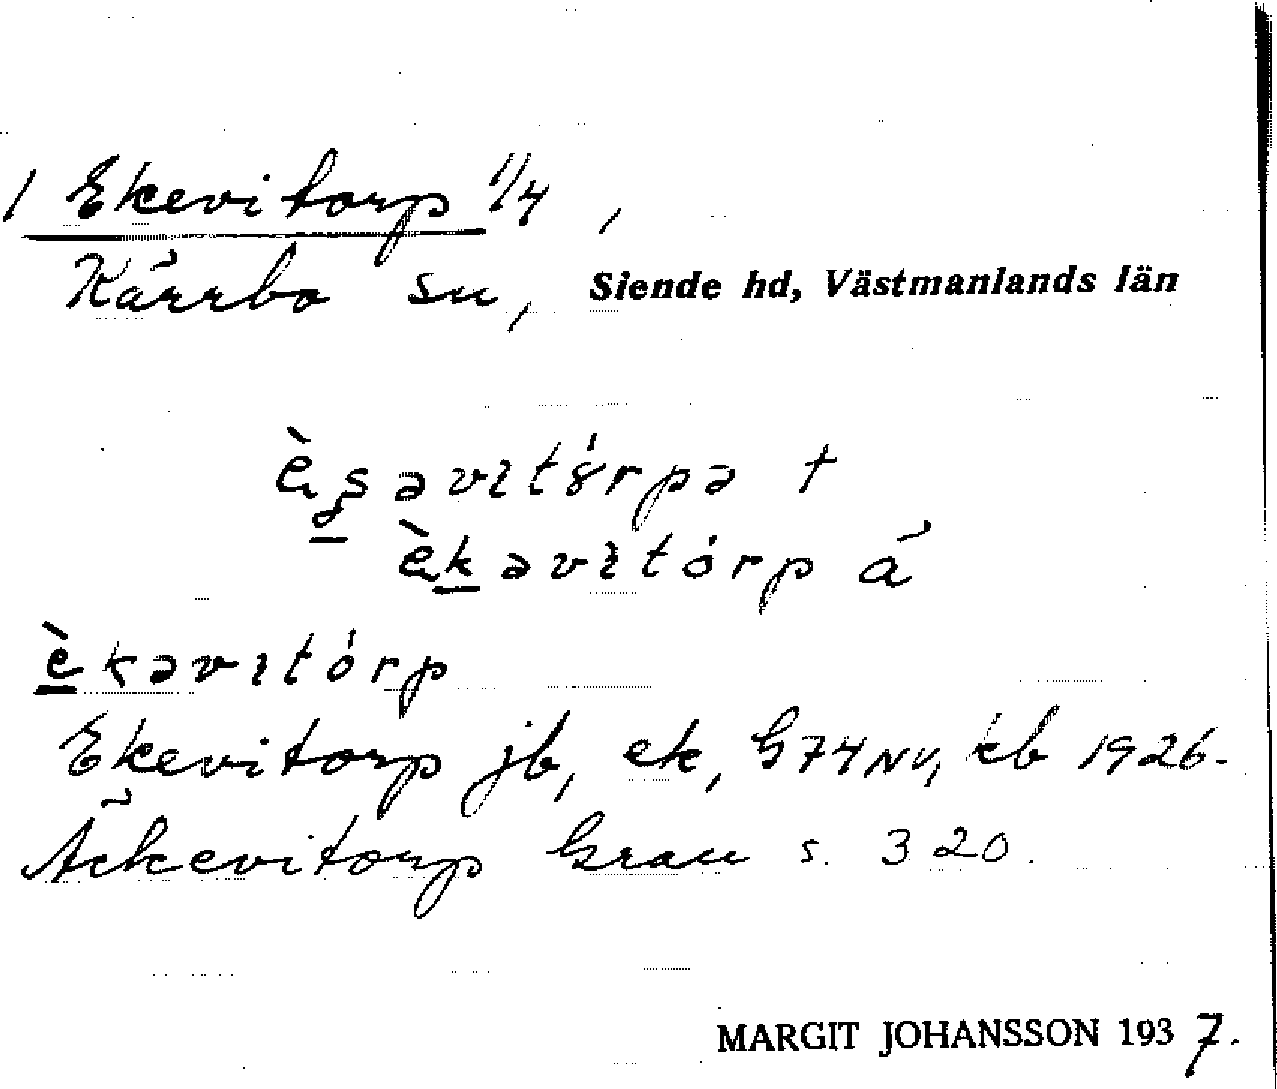 1 Ekevitorp 1/4,
Kärrbo sn, Siende hd, Västmanlands län
ə̀kəvɪtórp á
èkəvɪtórp
Ekevitorp jb, ek, G74NV, kb 1926-
Äckevitorp Grau s. 320.
MARGIT JOHANSSON 1937.